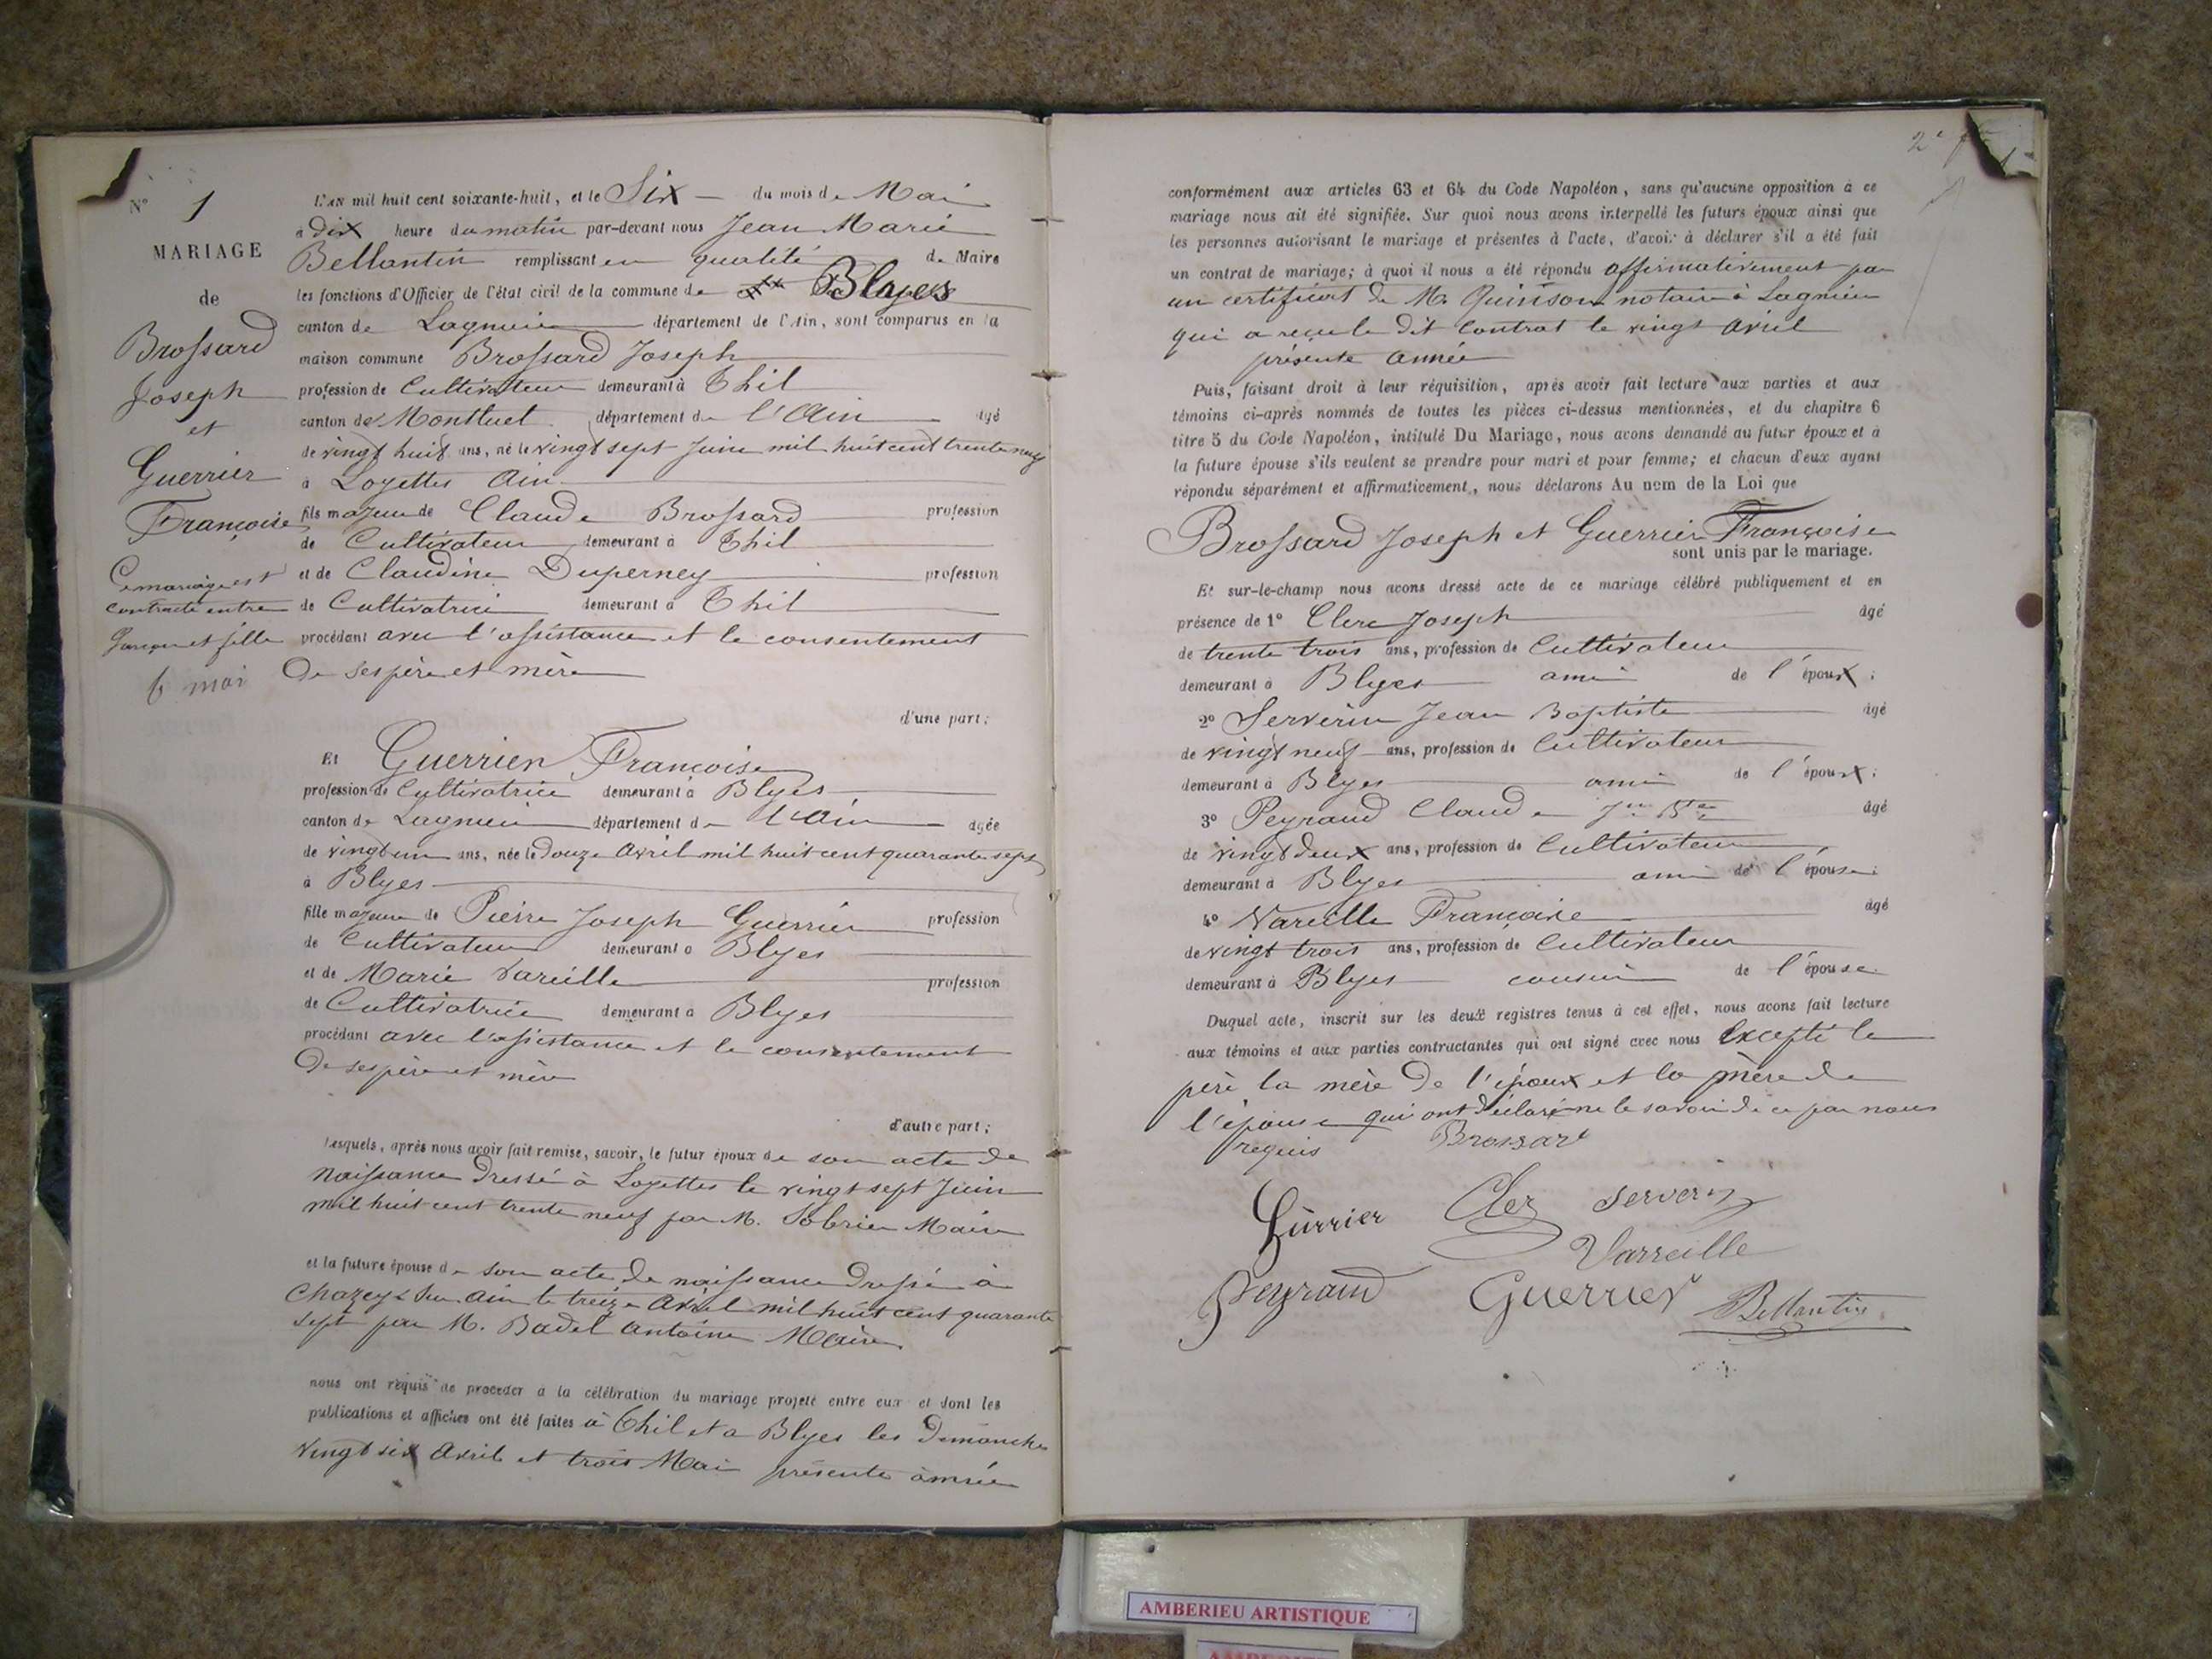 N° 1
MARIAGE
de
Brossard
Joseph
et
Guerrier
Françoise
Ce mariage est
contracté entre
Garçon et fille
6 mai
L'AN mil huit cent soixante-huit, et le Six du mois de Mai
à dix heure du matin par-devant nous Jean Marie
Bellantin remplissant en qualité de Maire
les fonctions d'Officier de l'état civil de la commune de Blyes
canton de Lagnieu département de l'Ain, sont comparus en la
maison commune Brossard Joseph
profession de Cultivateur demeurant à Thil
canton de Montluel département de l'Ain âgé
de vingt huit ans, né le vingt sept Juin mil huit cent trente neuf
à Loyettes Ain
fils majeur de Claude Brossard profession
de Cultivateur demeurant à Thil
et de Claudine Duperney profession
de Cultivatrice demeurant à Thil
procédant avec l'assistance et le consentement
de ses père et mère
d'une part;
Et Guerrier Françoise
profession de Cultivatrice demeurant à Blyes
canton de Lagnieu département de l'Ain âgée
de vingt un ans, née le Douze Avril mil huit cent quarante sept
à Blyes
fille majeure de Pierre Joseph Guerrier profession
de Cultivateur demeurant à Blyes
et de Marie Vareille profession
de Cultivatrice demeurant à Blyes
procédant avec l'assistance et le consentement
de ses père et mère
d'autre part;
Lesquels, après nous avoir fait remise, savoir, le futur époux de son acte de
naissance Dressé à Loyettes le vingt sept Juin
mil huit cent trente neuf par M. Maire
et la future épouse de son acte de naissance dressé à
Chazey sur Ain le treize Avril mil huit cent quarante
sept par M. Badel Antoine Maire
nous ont requis de procéder à la célébration du mariage projeté entre eux et dont les
publications et affiches ont été faites à Thil et à Blyes les Dimanches
vingt six Avril et trois Mai présente année
2e
conformément aux articles 63 et 64 du Code Napoléon, sans qu'aucune opposition à ce
mariage nous ait été signifiée. Sur quoi nous avons interpellé les futurs époux ainsi que
les personnes autorisant le mariage et présentes à l'acte, d'avoir à déclarer s'il a été fait
un contrat de mariage; à quoi il nous a été répondu affirmativement par
un certificat de Mr Quinson notaire à Lagnieu
qui a reçu le dit Contrat le vingt Avril
présente Année
Puis, faisant droit à leur réquisition, après avoir fait lecture aux parties et aux
témoins ci-après nommés de toutes les pièces ci-dessus mentionnées, et du chapitre 6
titre 5 du Code Napoléon, intitulé Du Mariage, nous avons demandé au futur époux et à
la future épouse s'ils veulent se prendre pour mari et pour femme; et chacun d'eux ayant
répondu séparément et affirmativement, nous déclarons Au nom de la Loi que
Brossard Joseph et Guerrier Françoise
sont unis par le mariage.
Et sur-le-champ nous avons dressé acte de ce mariage célébré publiquement et en
présence de 1° Clerc Joseph âgé
de trente trois ans, profession de Cultivateur
demeurant à Blyes ami de l'époux;
2° Serverin Jean Baptiste âgé
de vingt neuf ans, profession de Cultivateur
demeurant à Blyes ami de l'époux;
3° Peyraud Claude Jn Bte âgé
de vingt deux ans, profession de Cultivateur
demeurant à Blyes ami de l'épouse;
4° Vareille Françoise âgé
de vingt trois ans, profession de Cultivateur
demeurant à Blyes cousin de l'épouse
Duquel acte, inscrit sur les deux registres tenus à cet effet, nous avons fait lecture
aux témoins et aux parties contractantes qui ont signé avec nous Excepté le
père la mère De l'époux et la mère de
l'épouse qui ont déclaré ne le savoir de ce par nous
requis Brossart
Gùrrier Cler Serverin
Varreille
Peyraud Guerrier Bellantin
AMBERIEU ARTISTIQUE